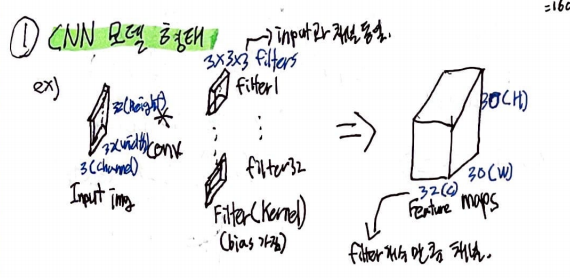 =160
① CNN 모델 형태
→ input과 채널 동일.
3×3×3 filters
ex)
32(height)
*
filter1
32(width)
conv
3(channel)
Input img
filter32
Filter(Kernel)
(bias 가짐)
⇒
30(H)
30(W)
32(C)
Feature maps
filter 개수 만큼 채널.